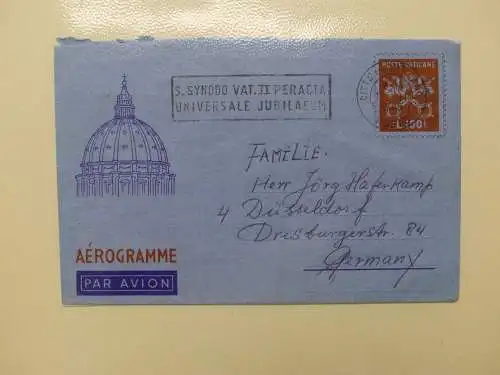 S. SYNODO VAT. II PERACTA
UNIVERSALE JUBILAEUM
POSTE VATICANE
FAMILIE.
Herr Jörg Haferkamp
4 Düsseldorf
Dresburgerstr. 84
Germany
AÉROGRAMME
PAR AVION